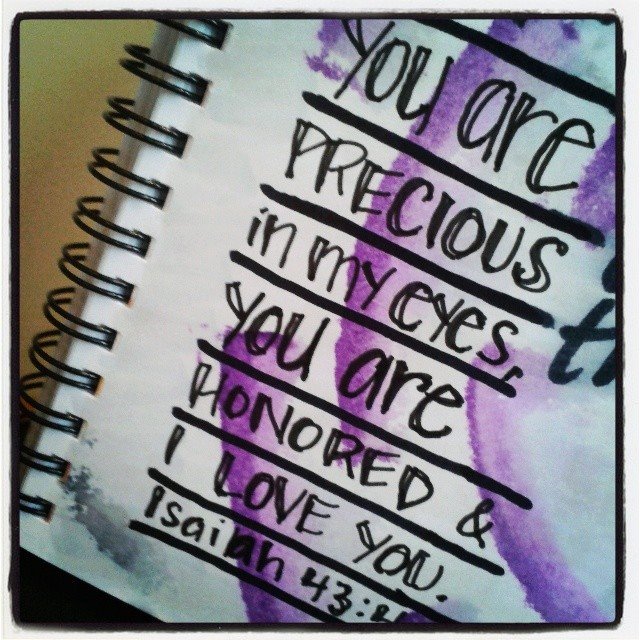 You are
PRECIOUS
in my eyes,
you are
HONORED &
I LOVE YOU.
Isaiah 43: